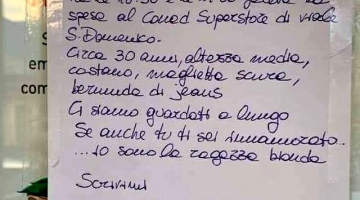 spesa al Conad Superstore di viale
S. Domenico.
Circa 30 anni, altezza media,
castano, maglietta scura,
bermuda di jeans
Ci siamo guardati a lungo
Se anche tu ti sei innamorato...
...io sono la ragazza bionda
Scrivimi
em
com